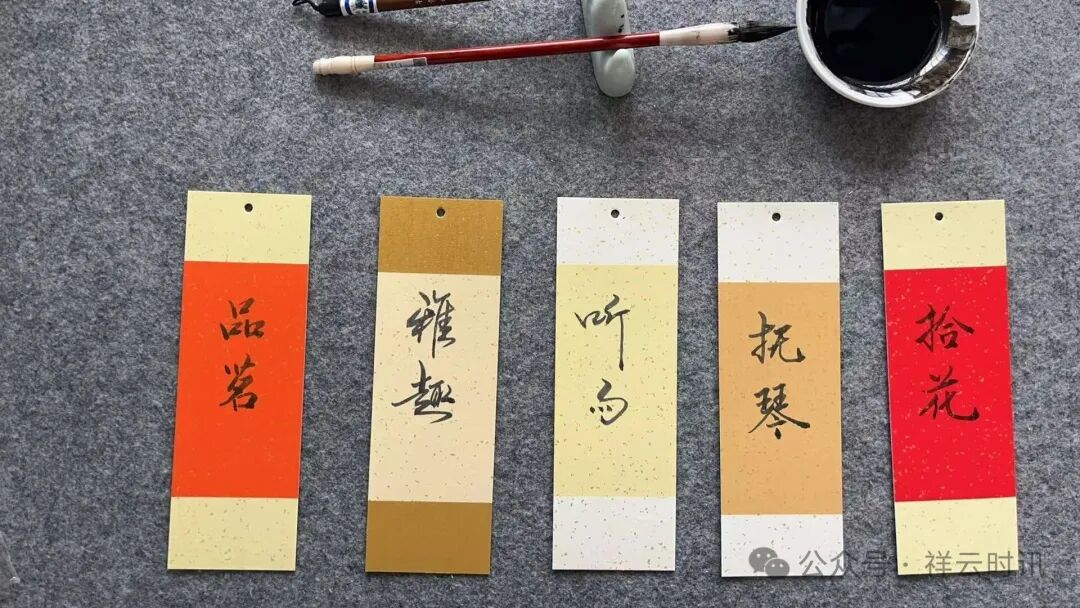 品茗
雅趣
听雨
抚琴
拾花
公众号 · 祥云时讯